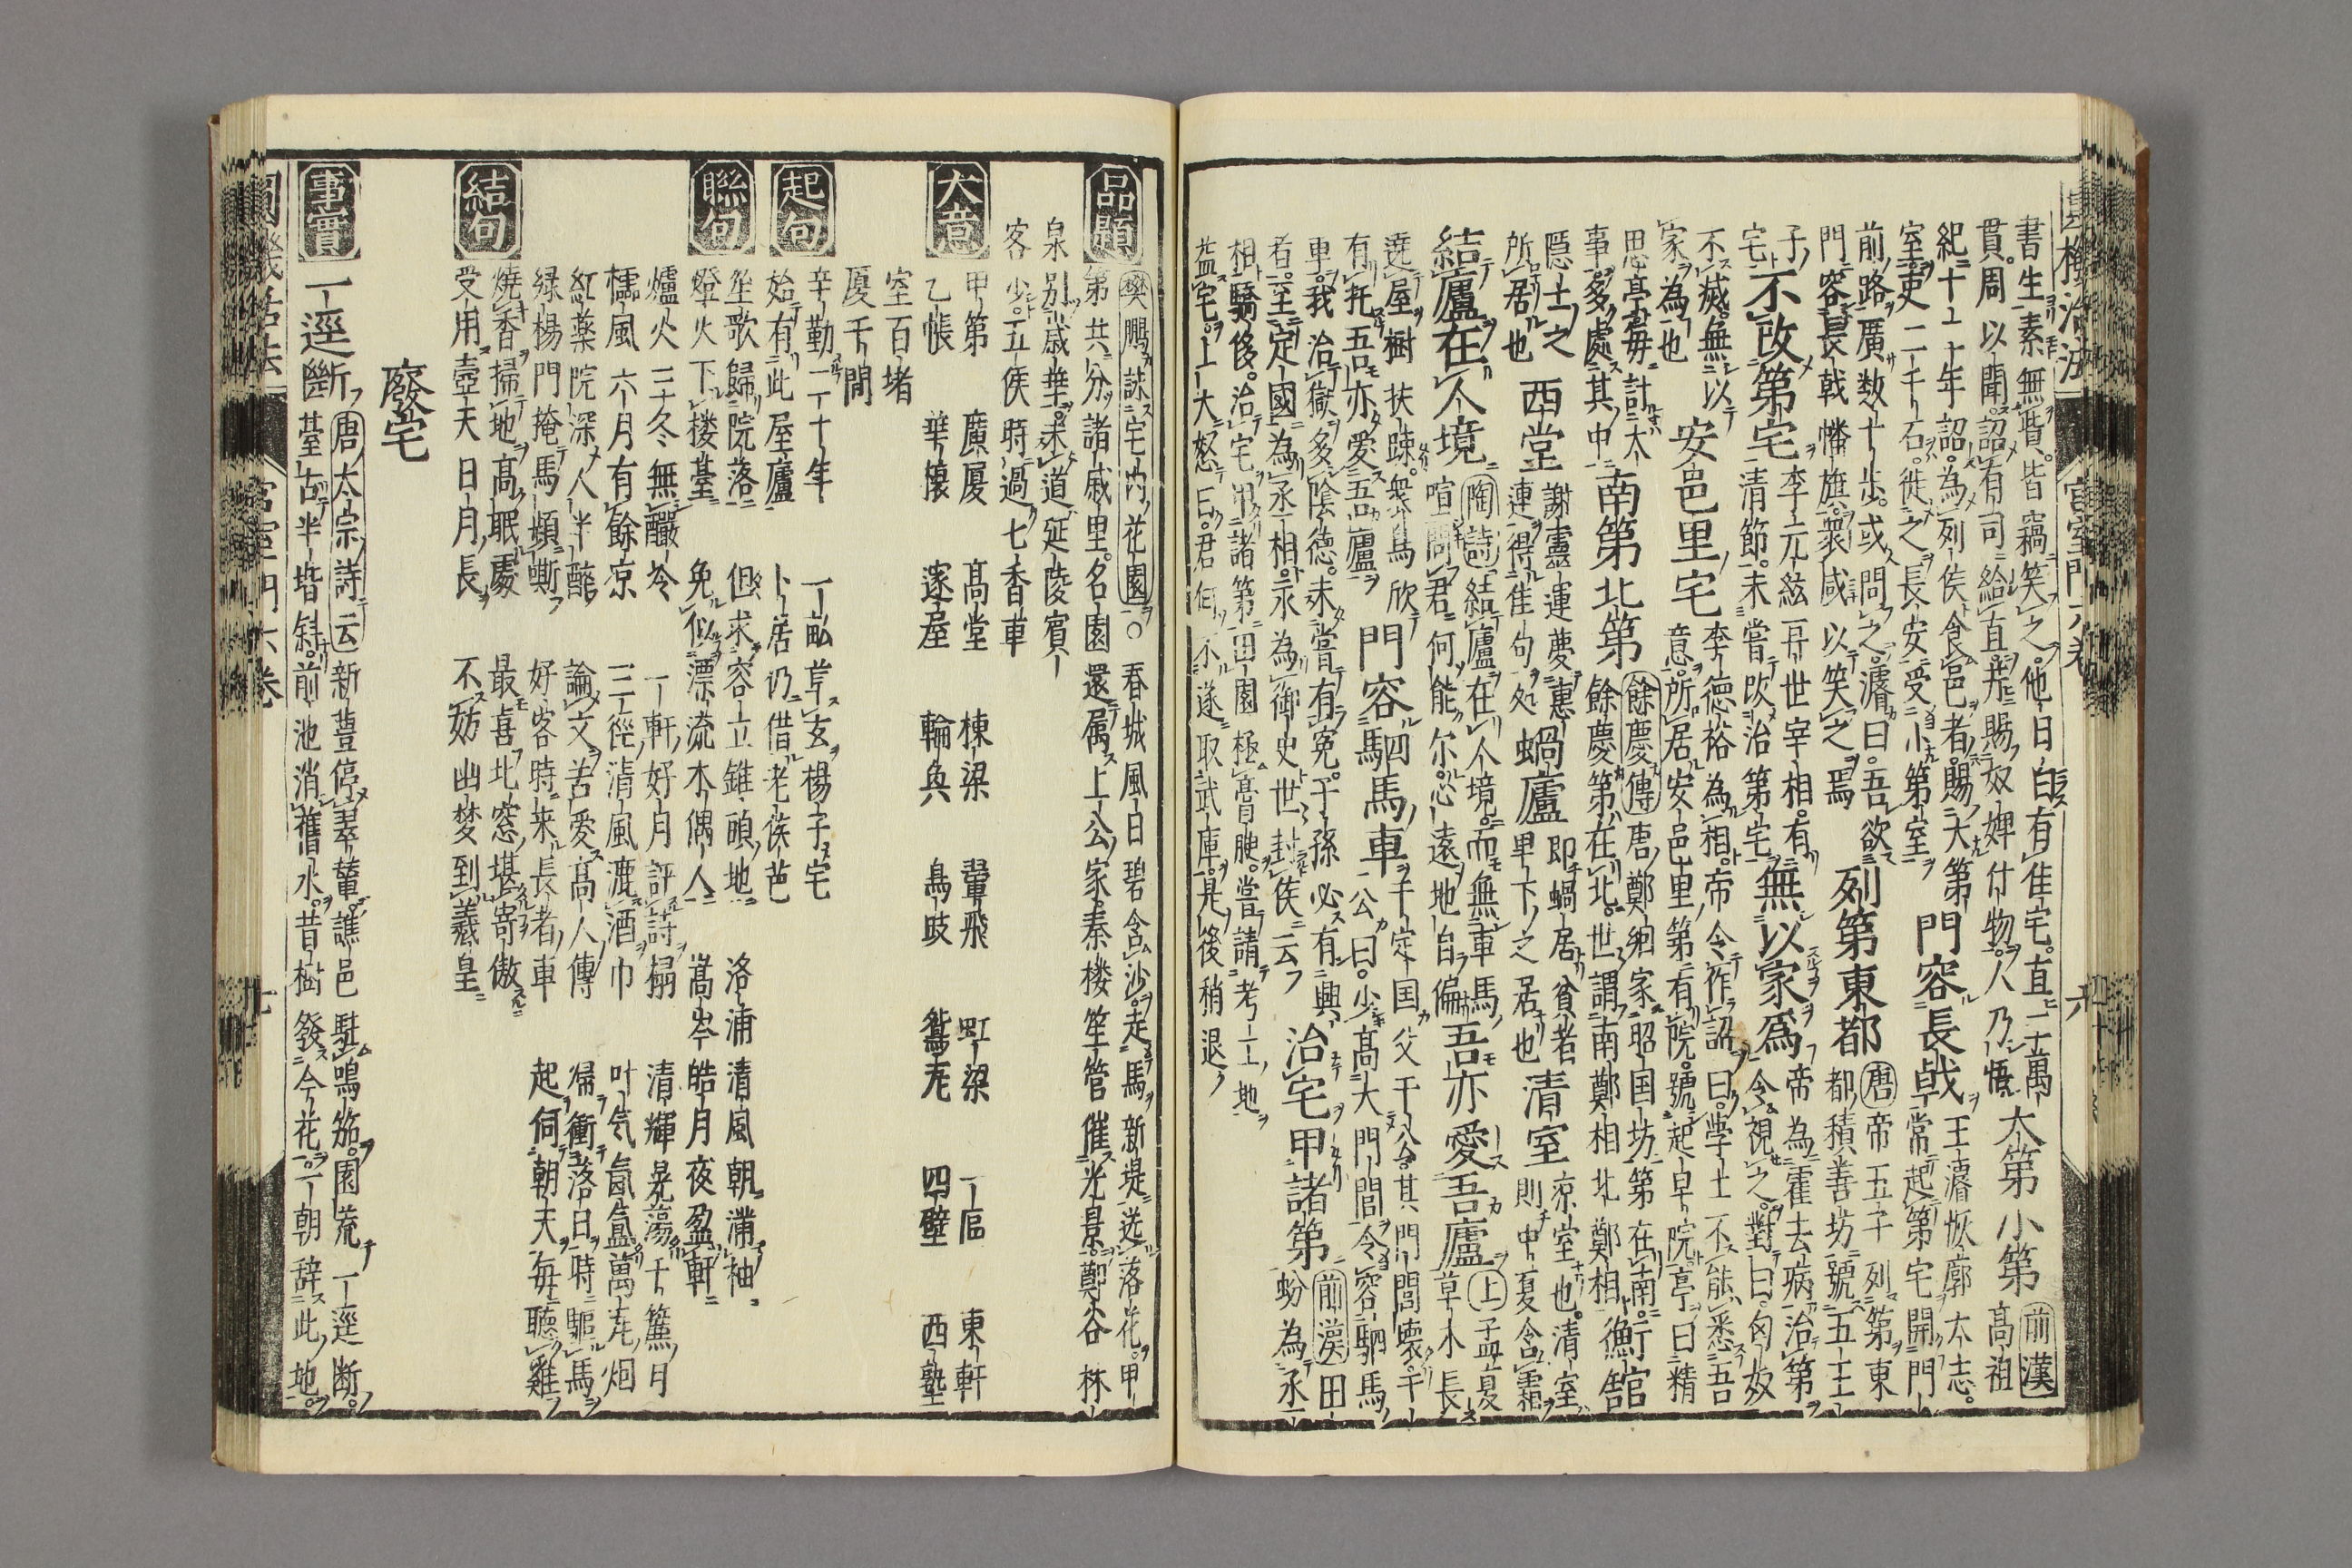 書生素無貲。皆竊笑之。他日白有佳宅。直二十萬
貫。周以聞。詔有司給直。幷賜奴婢什物。人乃悟 大第小第 前漢 高祖
紀十二年詔。為列侯食邑者。賜大第
室。吏二千石。徙之長安受小第室 門容長戟 王濬恢廓大志。常起第宅開門
前路廣数十步。或問之。濬曰。吾欲
門容長戟幡旗。衆咸以笑之焉 列第東都 唐 帝五子列第東都積善坊號五王
子宅 不改第宅 李元紘再世宰相。有清節。未嘗改治第宅 無以家為 帝為霍去病治第令視之。對曰匈奴
不滅。無以家為也 安邑里宅 李德裕為相。帝令作詔曰。學士不能悉吾意。所居安邑里第有院。號起草院亭曰精
思亭每計大事多處其中 南第北第 餘慶傳 唐鄭絪家昭国坊第在南。餘慶第在北。世謂南鄭相北鄭相
隱士之所居也 西堂 謝靈運夢惠連得佳句処 蝸廬 即蝸居貧者卑下之居也 清室 凉室也。清室則中夏含霜
結廬在人境 陶詩 結廬在人境。而無車馬喧 問君何能尔。心遠地自偏 吾亦愛吾廬 上 孟夏草木長
遶屋樹扶踈。衆鳥欣有托吾亦愛吾廬 門容駟馬車 于定国父于公。其門閭壊。于公曰。少高大門閭令容駟馬
車。我治獄多陰德。未嘗有冤。子孫必有興
者。至定國為丞相。永為御史世封侯云 治宅甲諸第 前漢 田蚡為丞
相驕侈。治宅甲諸第田園極膏腴。嘗請考工地
益宅。上大怒曰。君何不遂取武庫。是後稍退
品題
樊鵬詠宅内花園 ○春城風日碧含沙。走馬新堤迷落花。甲
第共分諸戚里。名園還属上公家。秦楼笙管催光景。鄭谷林
泉別戚畢。未道延陵賓
客少。五侯時過七香車
大意
甲第 廣厦 高堂 棟梁 翬飛 虹梁 一區 東軒
乙帳 華懐 邃屋 輪奐 鳥跂 鴛瓦 四壁 西塾
室百堵
厦千間
起句
辛勤二十年 一畝草玄楊子宅
始有此屋廬 卜居仍借老侯芭
聯句
笙歌歸院落 但求容立錐頭地 洛浦清風朝滿袖
燈火下楼䑓 免似漂流木偶人 嵩岑皓月夜盈軒
爐火三冬無嚴冷 一軒好月評詩榻 清輝晃蕩千簾月
櫺風六月有餘凉 三徑清風漉酒巾 叶气氤氳萬瓦烟
紅薬院深人半醉 論文苦愛高人傳 帰衝落日時驅馬
緑楊門掩馬頻嘶 好客時来長者車 起伺朝天每聴雞
結句
燒香掃地高眠處 最喜北窓堪寄傲
受用壺天日月長 不妨幽梦到羲皇
廢宅
事實
一逕斷 唐太宗詩云 新豊停翠輦。譙邑駐鳴笳。園荒一逕断。
䑓古半堦斜。前池消舊水。昔樹發今花。一朝辞此地。